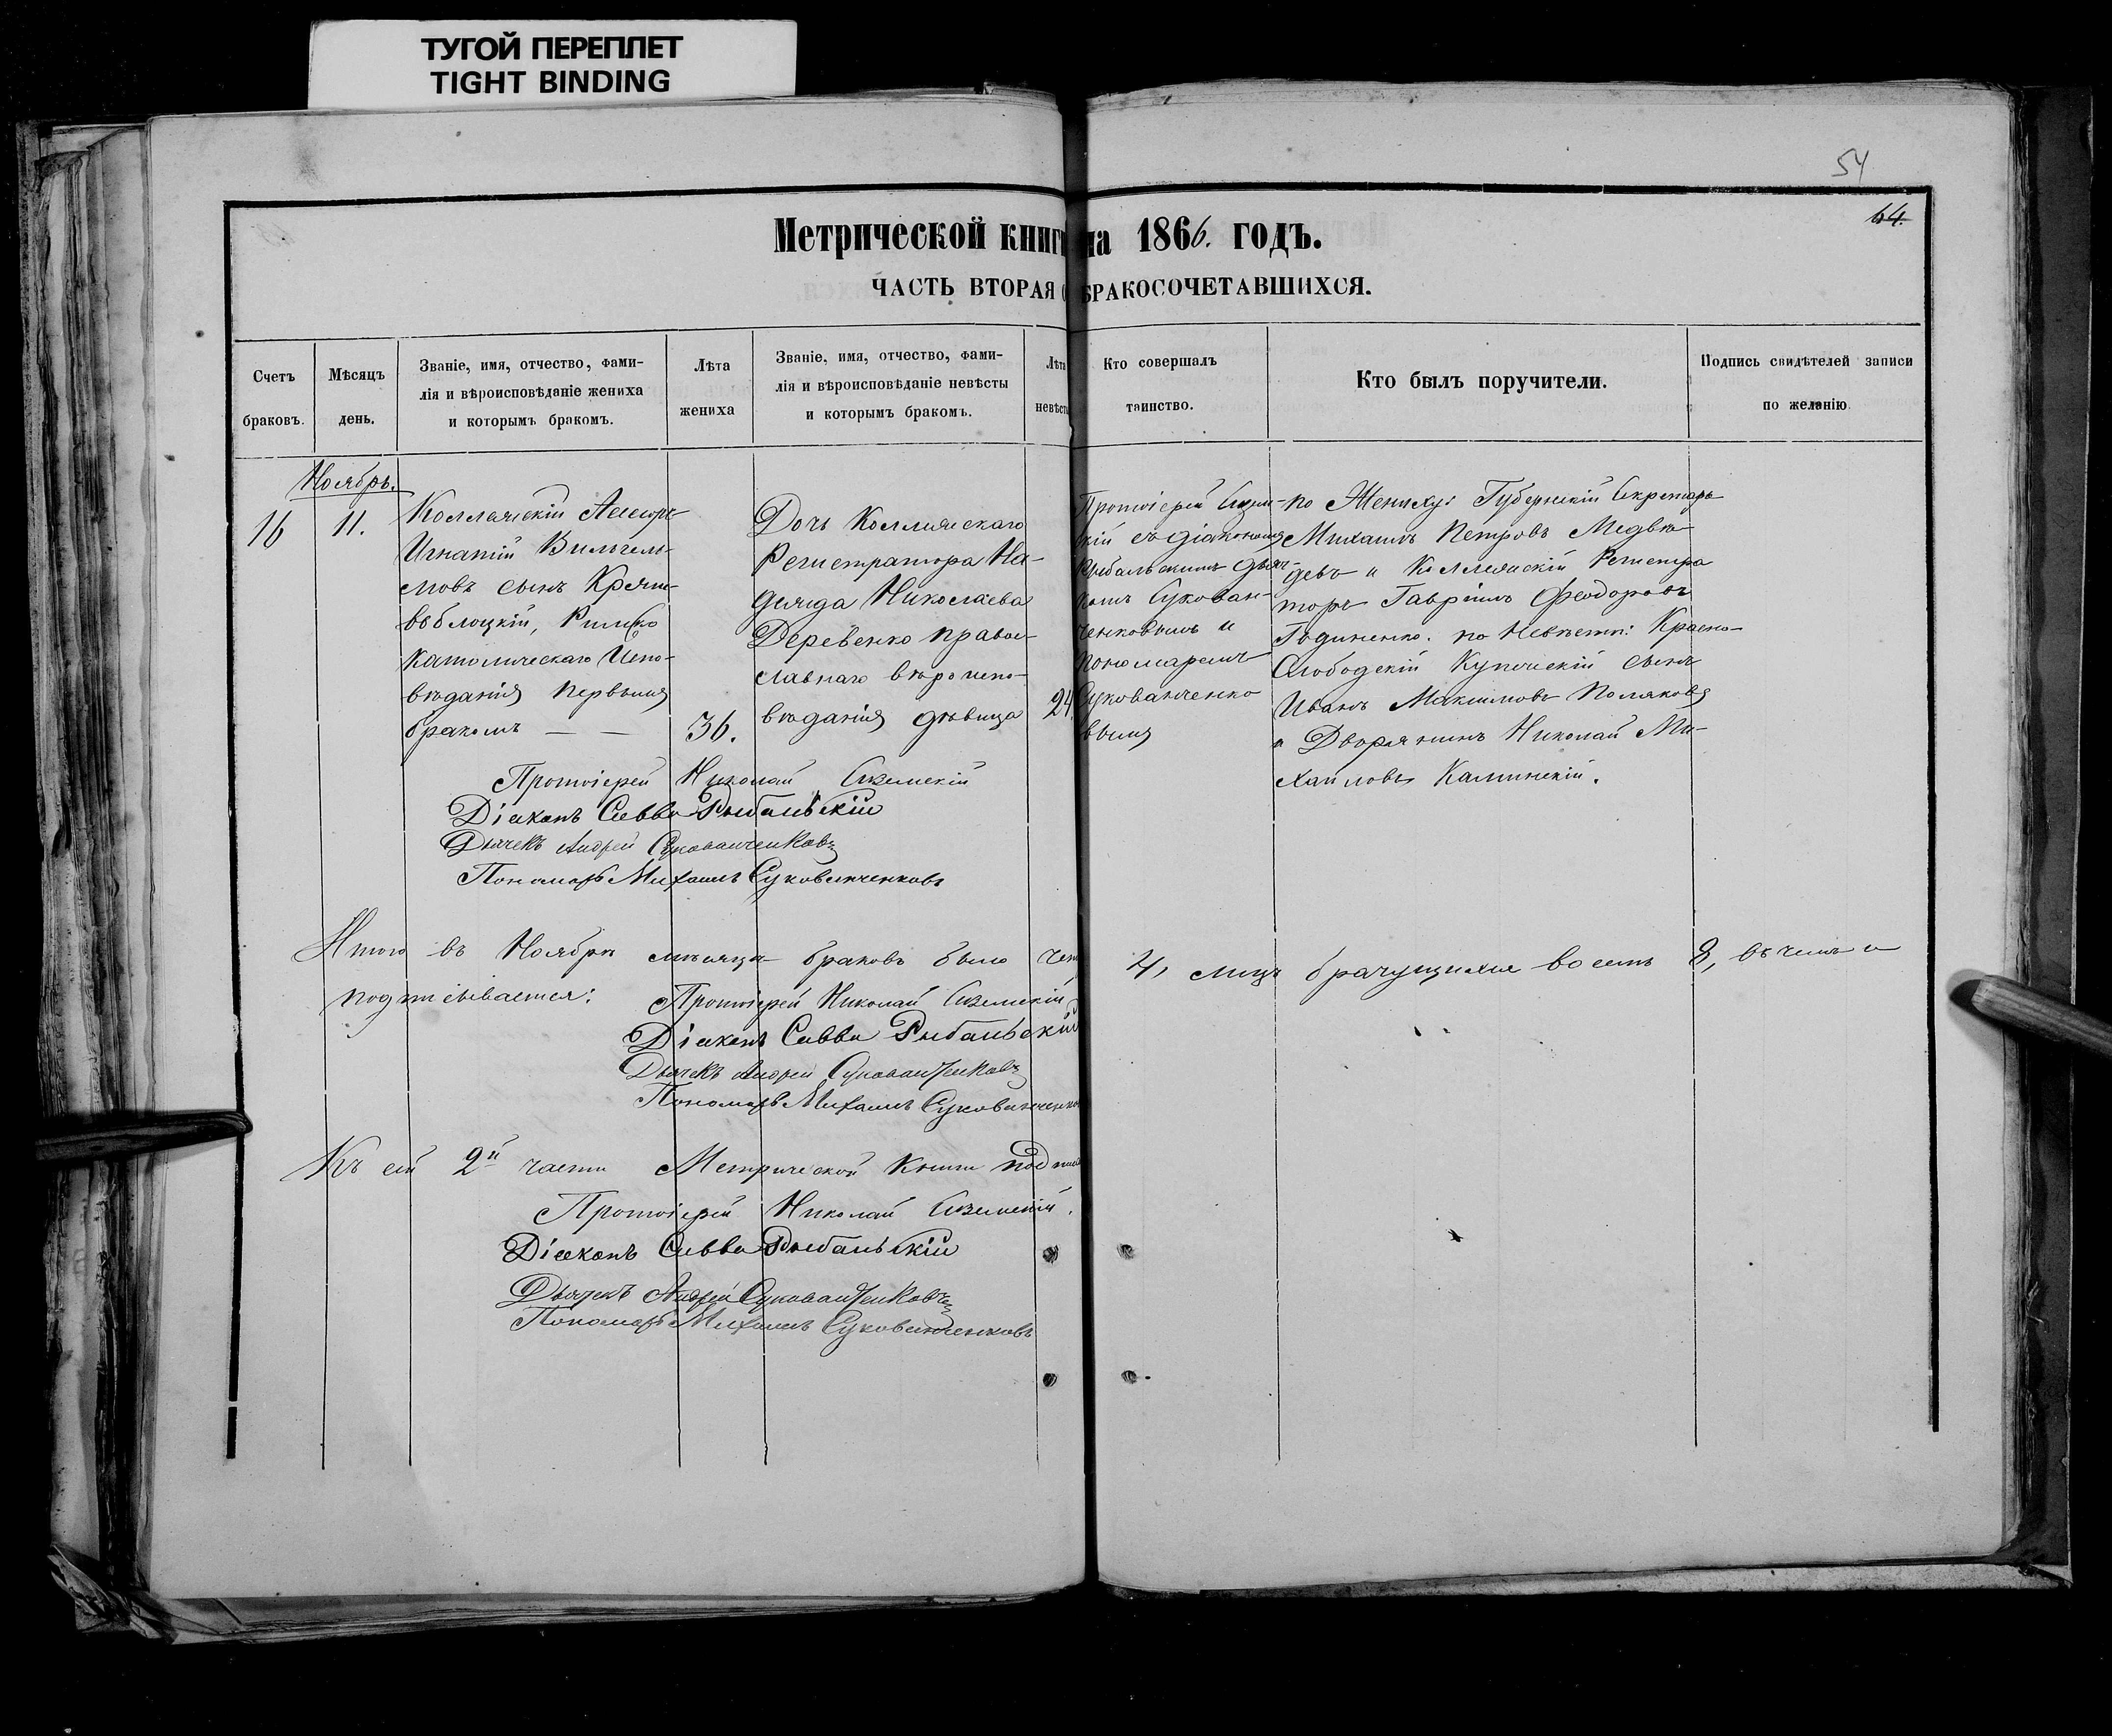 ТУГОЙ ПЕРЕПЛЕТ
TIGHT BINDING
54
64.
Метрической книг на 1866. годъ.
ЧАСТЬ ВТОРАЯ БРАКОСОЧЕТАВШИХСЯ.
Счетъ браковъ.
Мѣсяцъ день.
Званіе, имя, отчество, фами-
лія и вѣроисповѣданіе жениха
и которымъ бракомъ.
Лѣта жениха
Званіе, имя, отчество, фами-
лія и вѣроисповѣданіе невѣсты
и которымъ бракомъ.
Лѣта невѣст
Кто совершалъ
таинство.
Кто былъ поручители.
Подпись свидѣтелей записи
по желанію
Ноябрь.
16
11.
Коллежскій Асесоръ
Игнатій Вильгель-
мовъ сынъ
Римско
Католическаго Испо-
вѣданія первымъ
бракомъ — —
36.
Дочь Коллежскаго
Регистратора На-
дежда Николаева
Деревенко право-
славнаго вѣроиспо-
вѣданія дѣвица
24.
Протоіерей
кій съ діакономъ
Рыбальскимъ дьяч-
комъ Сукован-
ченковымъ и
пономаремъ
Сукованченко
вымъ
по Жениху: Губернскій Секретарь
Михаилъ Петровъ Медвѣ-
девъ и Коллежскій Регистра
торъ Гавріилъ Феодоровъ
Годиненко. по Невѣстѣ: Красно-
Слободскій Купеческій сынъ
Иванъ Максимовъ Поляковъ
и Дворянинъ Николай Ми-
хайловъ Калинскій.
Протоіерей Николай
Діаконъ Савва Рыбальскій
Дьячекъ Андрей Сукованченковъ
Пономарь Михаилъ Сукованченковъ
Итого въ Ноябрѣ мѣсяцѣ браковъ было чет 4, лицъ брачущихся восемь 8, въ чемъ и
подписываемся: Протоіерей Николай
Діаконъ Савва Рыбальскій
Дьячекъ Андрей Сукованченковъ
Пономарь Михаилъ Сукованченко
Къ сей 2й части Метрической Книги подпис
Протоіерей Николай
Діаконъ Савва Рыбальскій
Дьячекъ Андрей Сукованченковъ
Пономарь Михаилъ Сукованченковъ